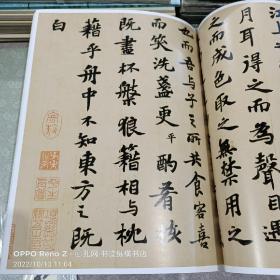 月耳得之而為聲目遇
之而成色取之無禁用之
也而吾與子之所共食客喜
而笑洗盞更平酌肴核
既盡杯槃狼籍相與枕
藉乎舟中不知東方之既
白
OPPO Reno Z
2022/10/13 11:04